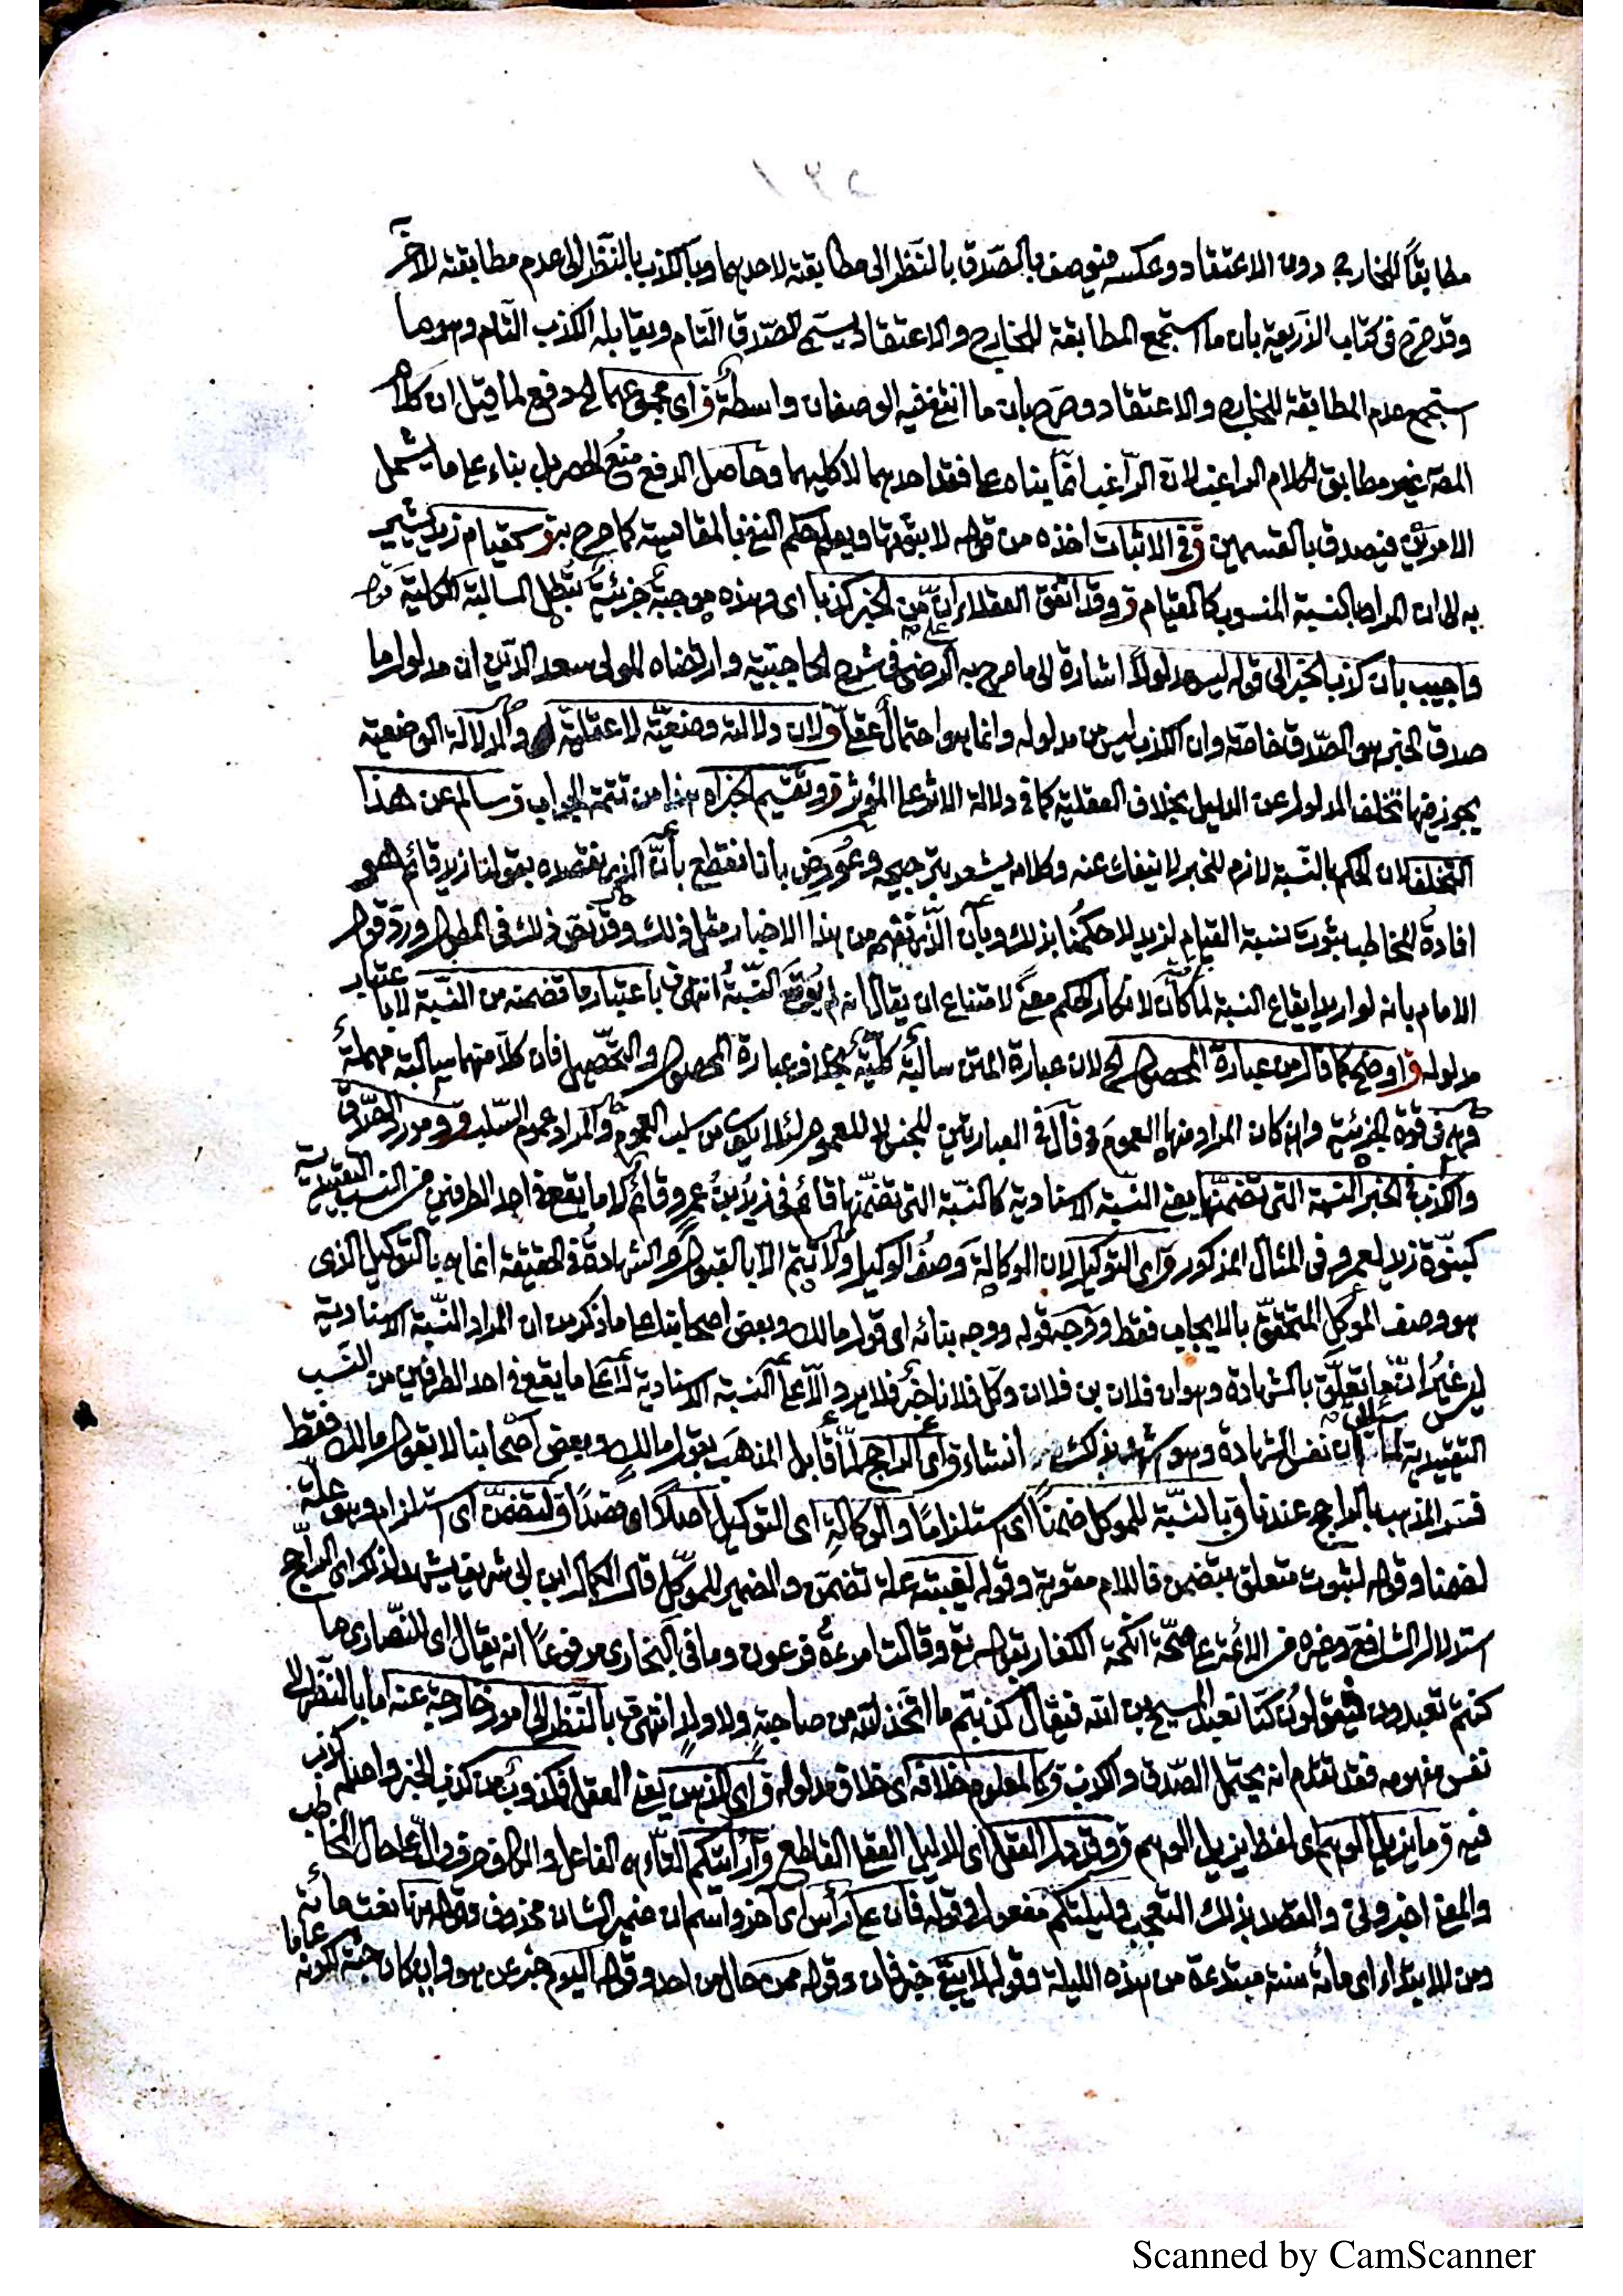 مطابقًا للخارج دون الاعتقاد وعكسه فيوصف بالصّدق بالنّظر الى مطابقته لاحدهما وبالكذب بالنّظر الى عدم مطابقته للآخر
وقد صرّح فى كتاب الذريعة بان ما استجمع المطابقة للخارج والاعتقاد يسمى الصّدق التام ويقابله الكذب التام وهو ما
استجمع عدم المطابقة للخارج والاعتقاد وصرح بان ما انتفى فيه الوصفان واسطة ق اى مجموعهما الخ دفع لما قيل ان كلام
المص غير مطابق لكلام الراغب لان الرّاغب انما بناه على فقد احدهما لا كليهما وحاصل الدفع منع الحصر بل بناء على ما يشمل
الامرين فيصدق بالقسمين ق فى الاثبات اخذه من قوله لا ثبوتها ويعلم حكم النفى بالمقايسة كما صرح به ق كقيام زيد يشير
به الى ان المراد بالنسبة المنسوب كالقيام ق وقد اتفق العقلاء ان من الخبر كذبا اى وهذه موجبة جزئية تبطل السالبة الكلية قوله
واجيب بان كذب الخبر الى قوله ليس مدلولا اشارة الى ما صرح به الرضى فى شرح الحاجبية وارتضاه المولى سعد الدين ان مدلول ما
صدق الخبر هو الصّدق خاصة وان الكذب ليس من مدلوله وانما هو احتمال عقلى ولان دلالته وضعيّة لا عقلية والدلالة الوضعية
يجوز فيها تخلف المدلول عن الدليل بخلاف العقلية كما فى دلالة الاثر على المؤثر ق وتقسيم الخبر اه هذا من تتمة الجواب ق سالم عن هذا
التخلف لان الحكم بالنسبة لازم للخبر لا ينفك عنه وكلامه يشعر بترجيحه وعورض بانا نقطع بأنّ الذى نقصده بقولنا زيد قائم هو
افادة المخاطب بثبوت نسبة القيام لزيد لا حكمنا بذلك وبأن الذى نفهم من هذا الاخبار مثل ذلك وقد نص ذلك فى المطول ورد قول
الامام بانه لو اريد ايقاع النسبة لما كان لانكار الحكم معنى لامتناع ان يقال انه لم يوقع النسبة انتهى ق باعتبار ما تضمنه من النسبة لا باعتبار
مدلوله ق اوضح كما قال من عبارة المحصول الخ لان عبارة المتن سالبة كلية بخلاف عبارة المحصول والتحصيل فان كلا منهما سالبة مهملة
فهى فى قوة الجزئية وان كان المراد منها العموم وقال فى العبارتين للجنس لا للعموم لئلا يكون من سلب العموم والمراد عموم السّلب ق ومورد الصّدق
والكذب فى الخبر النسبة التى تضمنها يعنى النسبة الاسنادية كالنسبة التى تضمنها قائم فى زيد بن عمرو قائم لا ما يقع فى احد الطرفين من النسب التقييدية
كبنوّة زيد لعمرو فى المثال المذكور ق اى التوكيل لان الوكالة وصف الوكيل ولا تتم الا بالقبول والشهادة فى الحقيقة انما هى بالتوكيل الذى
هو وصف الموكل المتحقق بالايجاب فقط ق وجه قوله ووجه بنائه اى قول مالك وبعض اصحابنا على ما ذكر من ان المراد النسبة الاسنادية
ليس غير ان ما يتعلق بالشهادة وهو ان فلان بن فلان وكل فلانا خبر فلا يرد الا على النسبة الاسنادية لا على ما يقع فى احد الطرفين من النسب
التقييدية لما سيأتى ان نفس الشهادة وهو اشهد بذلك انشاء ق اى الراجح لما قابل المذهب بقول مالك وبعض اصحابنا لا بقول مالك فقط
فسر المذهب بالراجح عندنا ق بالنسبة للموكل ضمنا اى استلزاما والوكالة اى التوكيل اصلا اى قصدا ق لتضمن اى استلزام وهو علّة
لضمنا وقوله لثبوت متعلق بتضمن فاللام مقوية وقوله لغيبته علة تضمن والضمير للموكل قال الكمال ابن ابى شريف يشهد لما ذكر اى الراجح
استدلال الشافعى وغيره من الائمة على صحّة انكحة الكفار بقوله تع وقالت امرءة فرعون وما فى البخارى مرفوعا انه يقال اى للنصارى ما
كنتم تعبدون فيقولون كنا نعبد المسيح بن الله فيقال كذبتم ما اتخذ الله من صاحبة ولا ولد انتهى ق بالنظر الى امور خارجة عنه اما بالنظر الى
نفس مفهومه فقد تقدم انه يحتمل الصّدق والكذب ق كالمعلوم خلافه اى خلاف مدلوله ق اى الذهن يعنى العقل فمكذوب من كذب الخبر واحتمل كذب
فيه ق ما يزيل الوهم اى لفظ يزيل الوهم ق وقد دل العقل اى الدليل العقلى القاطع ق أرأيتكم التاء هى الفاعل والكاف حرف دالّ على حال المخاطب
والمعنى اخبرونى والقصد بذلك التعجيب وليلتكم مفعول وقوله فان على رأس اى آخر واسم ان ضمير الشان محذوف وقوله منها نعت مائة
ومن للابتداء اى مائة سنة مبتدءة من هذه الليلة وقوله لا يبقى خبر فان وقوله ممن حال من احد وقوله اليوم خبر عن هو وان كان جثة لكونه عاما
Scanned by CamScanner